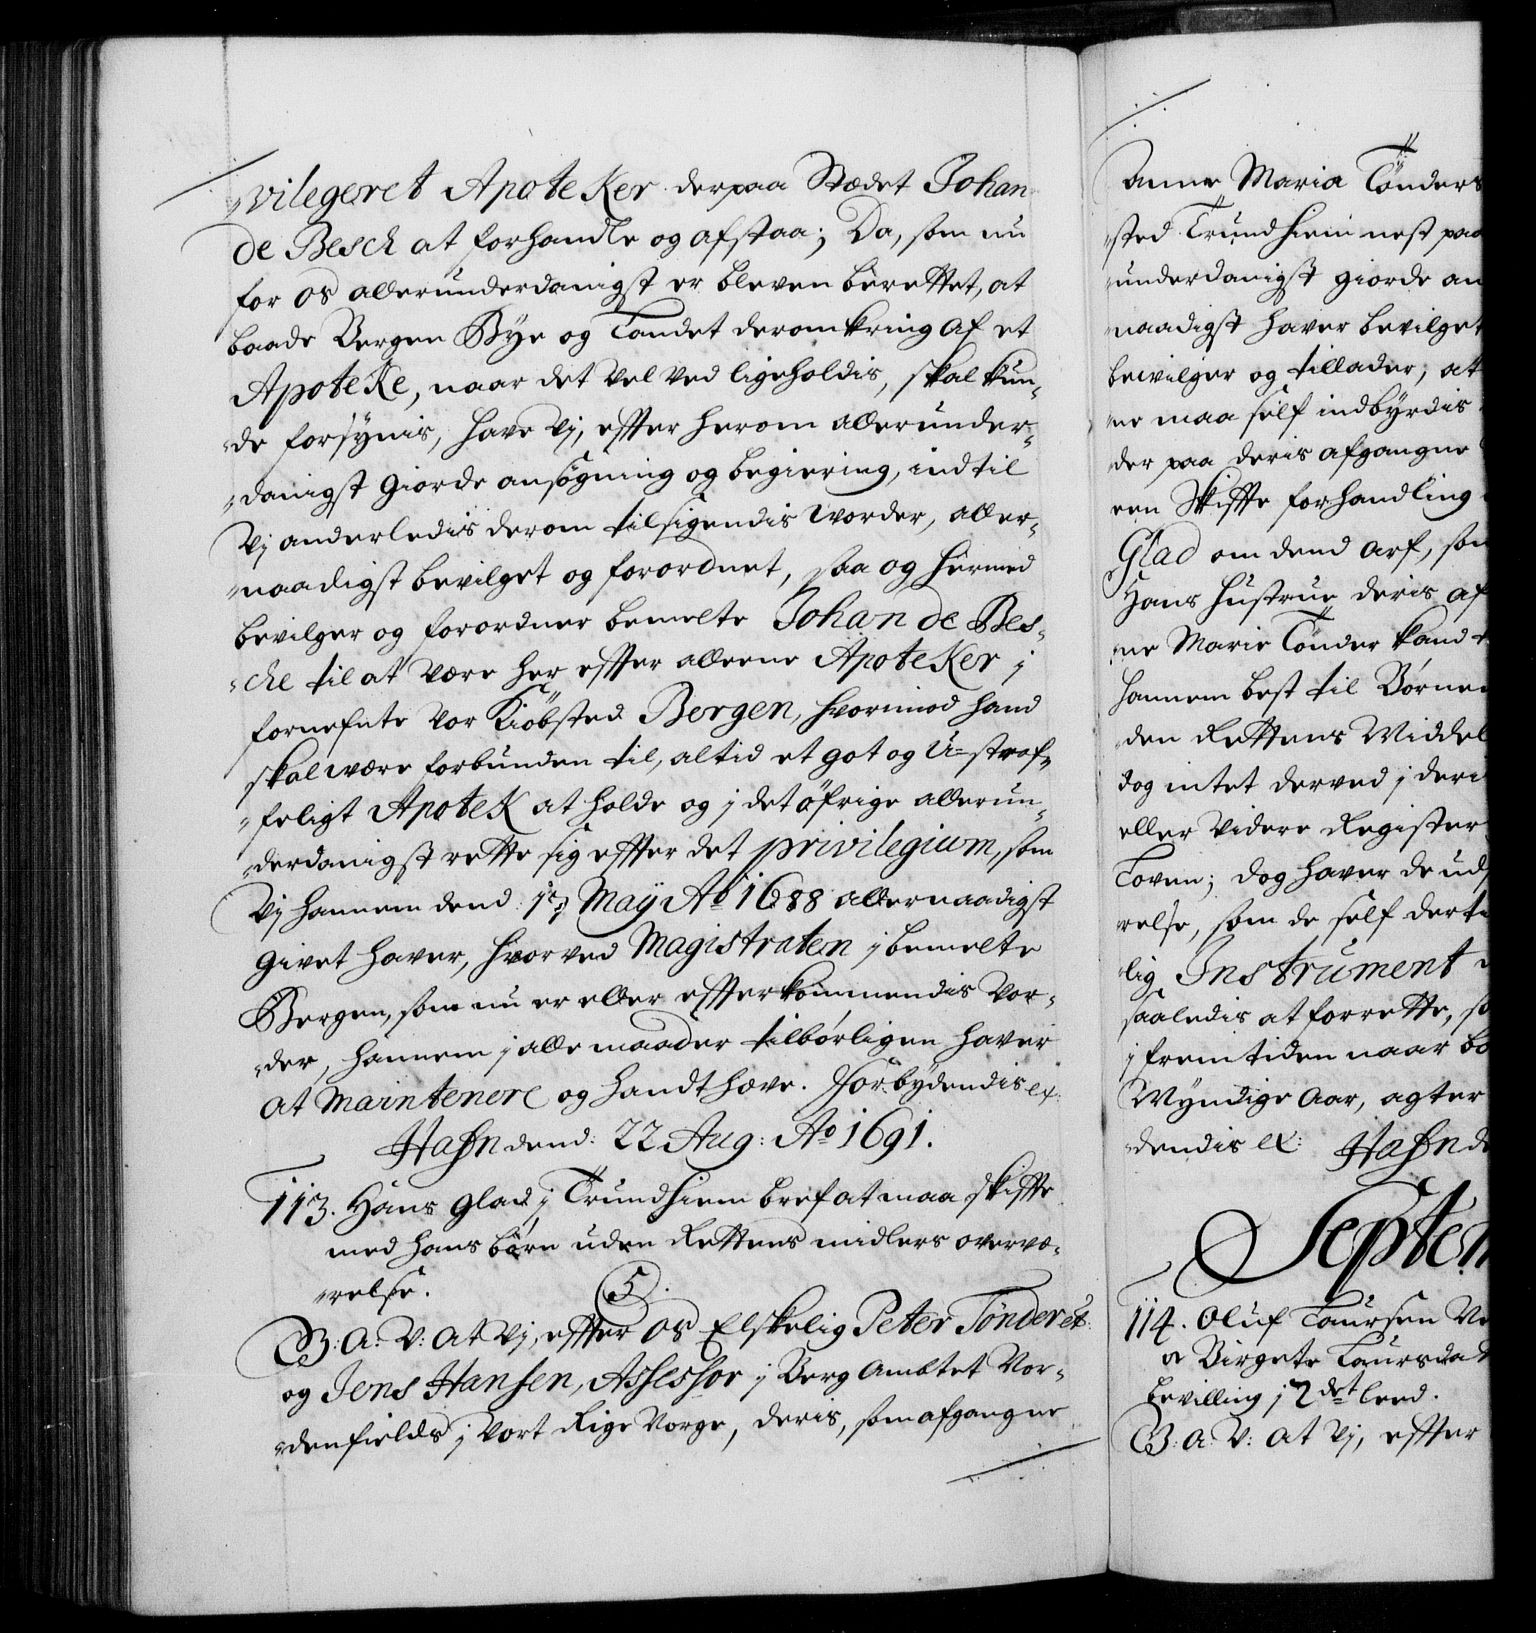 vilegeret Apoteker derpaa Stædet Johan
de Besch at forhandle og afstaa; Da, som nu
for os allerunderdanigst er bleven berettet, at
baade Bergen Bye og Landet deromkring af et
Apoteke, naar det vel ved ligeholdis, skal kun-
de forsÿnis, have Vj, efter herom allerunder-
danigst giorde ansøgning og begiering, indtil
Vj anderledis derom tilsigendis worder, aller-
naadigst bevilget og forordnet, saa og hermed
bevilger og forordner bemelte Johan de Bes-
che til at være her effter alleene Apoteker j
fornefnte Vor Kiöbsted Bergen, hvorimod hand
skal være forbunden til, altid et got og U-straf-
feligt Apotek at holde og j det öfrige allerun-
derdanigst rette sig effter det privilegium, som
Vj hannem dend: 1te May Ao 1688 allernaadigst
givet haver, hvorved Magistraten j bemelte
Bergen, som nu er eller effterkommendis vor-
der, hannem j alle maader tilbørligen haver
at maintenere og handthæve. Forbÿdendis etc:
Hafn dend: 22 Aug: Ao 1691.
113. Hans Glad j Trundhiem bref at maa skiffte
med hans børn uden Rettens midlers overvæ-
relse.
5.
G: A: V: At Vj, effter os Elskelig Peter Tönder etc:
og Jens Hansen, Assessor j Berg Ambtet Nor-
denfields j vort Rige Norge, deris, som afgangne
Anne Maria Tönders
sted Trundhiem nest paa
underdanigst giorde an
naadigst haver bevilget
bewilger og tillader, att
ne maa self indbÿrdis
der paa deris afgangne
een Skiffte forhandling
Glad om dend Arf, som
Hans Hustrue deris af
ne Marie Tönder kand
hannem best til Børnen
den Rettens Middel
dog intet derved j deri
eller videre Register
Loven; dog haver de uds
relse, som de self derti
lig Instrument
saaledis at forrette, so
j fremtiden naar bø
Myndige Aar, agter
dendis etc: Hafn de
Septem
114. Oluf Laursen Ve
Birgete Laursda
bevilling j 2det leed.
G: A: V: At Vj, effter